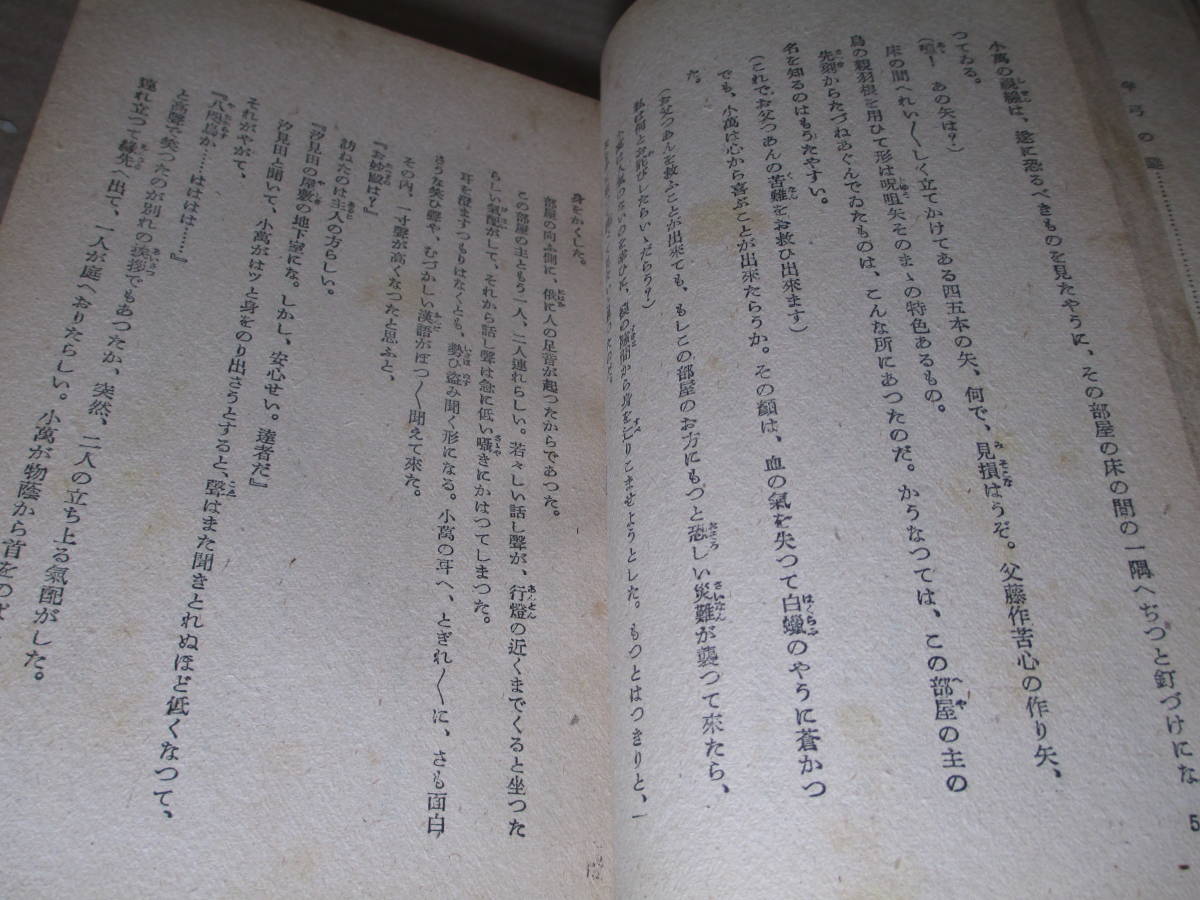 弓の
5
小萬の視線は、遂に恐るべきものを見たやうに、その部屋の床の間の一隅へぢつと釘づけにな
つてゐる。
(噫！　あの矢は？)
床の間へれい〳〵しく立てかけてある四五本の矢、何で、見損はうぞ。父藤作苦心の作り矢、
鳥の親羽根を用ひて形は呪咀矢そのまゝの特色あるもの。
先刻からたづねあぐんでゐたものは、こんな所にあつたのだ。かうなつては、この部屋の主の
名を知るのはもうたやすい。
(これで、お父つあんの苦難をお救ひ出來ます)
でも、小萬は心から喜ぶことが出來たらうか。その顏は、血の氣を失つて白蠟のやうに蒼かつ
た。
(お父つあんを救ふことが出來ても、もしこの部屋のお方にもつと恐しい災難が襲つて來たら、
私は何とお詫びしたらいゝだらう？)
から身をこませようとした。もつとはつきりと、一
身をかくした。
部屋の向ふ側に、俄に人の足音が起つたからであつた。
この部屋の主ともう一人、二人連れらしい。若々しい話し聲が、行燈の近くまでくると坐つた
らしい氣配がして、それから話し聲は急に低い囁きにかはつてしまつた。
耳を澄ますつもりはなくとも、勢ひ盜み聞く形になる。小萬の耳へ、とぎれ〳〵に、さも面白
さうな笑ひ聲や、むづかしい漢語がぽつ〳〵聞えて來た。
その内、一寸聲が高くなつたと思ふと、
『お妙殿は？』
訪ねたのは主人の方らしい。
『汐見田の屋敷の地下室にな。しかし、安心せい。達者だ』
汐見田と聞いて、小萬がはツと身をのり出さうとすると、聲はまた聞きとれぬほど低くなつて、
それがやがて、
『八咫烏か……はははは……』
と高聲で笑つたのが別れの挨拶でもあつたか、突然、二人の立ち上る氣配がした。
連れ立つて緣先へ出て、一人が庭へおりたらしい。小萬が物蔭から首をのば